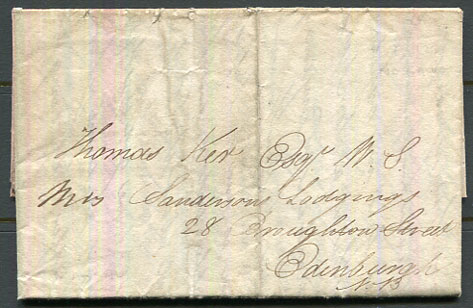 Thomas Ker Esqr W.S
Mrs Sandersons Lodgings
28 Broughton Street
Edinburgh
N.B